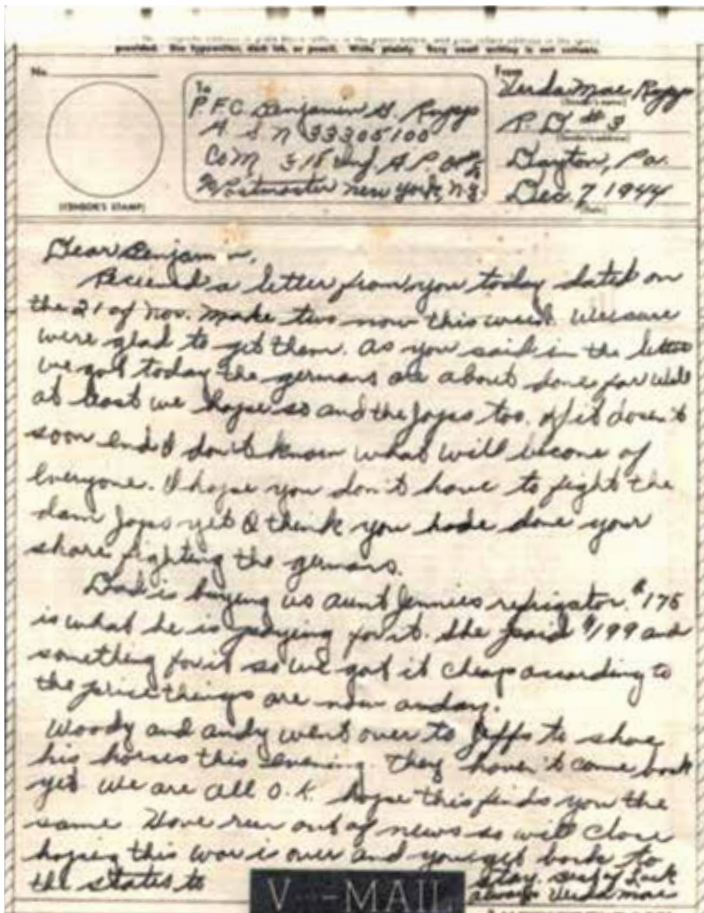 provided. Use typewriter, dark ink, or pencil. Write plainly. Very small writing is not suitable.
No.
(CENSOR'S STAMP)
To
P.F.C. Benjamin G. Rupp
A. S N 33305100
Co M 315 Inf. A P O
% Postmaster New York, N.Y.
From
Verda Mae Rupp
(Sender's name)
R. D # 3
(Sender's address)
Dayton, Pa.
Dec. 7 1944
(Date)
Dear Benjamin,
Recieved a letter from you today dated on
the 21 of Nov. make two now this week. We sure
were glad to get them. As you said in the letter
we got today the germans are about done for well
at least we hope so and the Japs too. If it doesn't
soon end I don't know what will become of
everyone. I hope you don't have to fight the
dam Japs yet I think you hade done your
share fighting the germans.
Dad is buying us aunt Jennies refrigator. $175
is what he is paying for it. She paid $199 and
something for it so we got it cheap according to
the price things are now anday.
Woody and andy went over to Jeffs to shoe
his horses this evening they haven't come back
yet. We are all O.K. hope this finds you the
same Have run out of news so will close
hoping this war is over and you get back to
the states to stay. Best of Luck
always Verda Mae
V···-MAIL